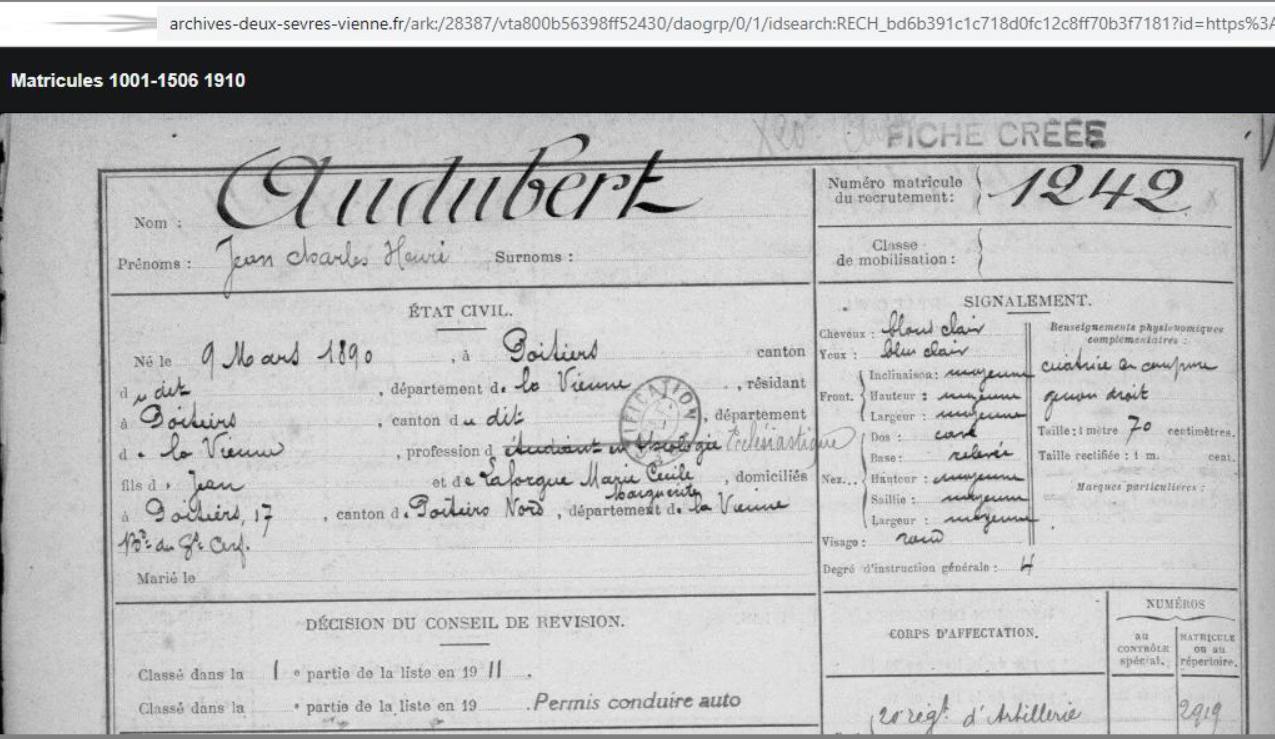 archives-deux-sevres-vienne.fr/ark:/28387/vta800b56398ff52430/daogrp/0/1/idsearch:RECH_bd6b391c1c718d0fc12c8ff70b3f7181?id=https%3A
Matricules 1001-1506 1910
FICHE CRÉÉE
Nom : Audubert
Prénoms : Jean Charles Henri Surnoms :
Numéro matricule du recrutement : 1242
Classe de mobilisation :
ÉTAT CIVIL.
Né le 9 Mars 1890, à Poitiers canton
du dit, département de la Vienne, résidant
à Poitiers, canton du dit, département
de la Vienne, profession d étudiant en théologie Ecclésiastique
fils de Jean et de Laforgue Marie Cécile Marguerite, domiciliés
à Poitiers, 17, canton de Poitiers Nord, département de la Vienne
Bd du Gd Cerf.
Marié le
SIGNALEMENT.
Cheveux : blond clair
Yeux : bleu clair
Front. Inclinaison : moyenne
Hauteur : moyenne
Largeur : moyenne
Nez... Dos : cavé
Base : relevée
Hauteur : moyenne
Saillie : moyenne
Largeur : moyenne
Visage : rond
Renseignements physionomiques complémentaires :
cicatrice en coupure
genou droit
Taille : 1 mètre 70 centimètres.
Taille rectifiée : 1 m. cent.
Marques particulières :
Degré d'instruction générale : 4
DÉCISION DU CONSEIL DE REVISION.
Classé dans la 1 e partie de la liste en 1911.
Classé dans la e partie de la liste en 19 . Permis conduire auto
CORPS D'AFFECTATION.
NUMÉROS
au CONTRÔLE spécial.
MATRICULE ou au répertoire.
20 régt. d'Artillerie 2919